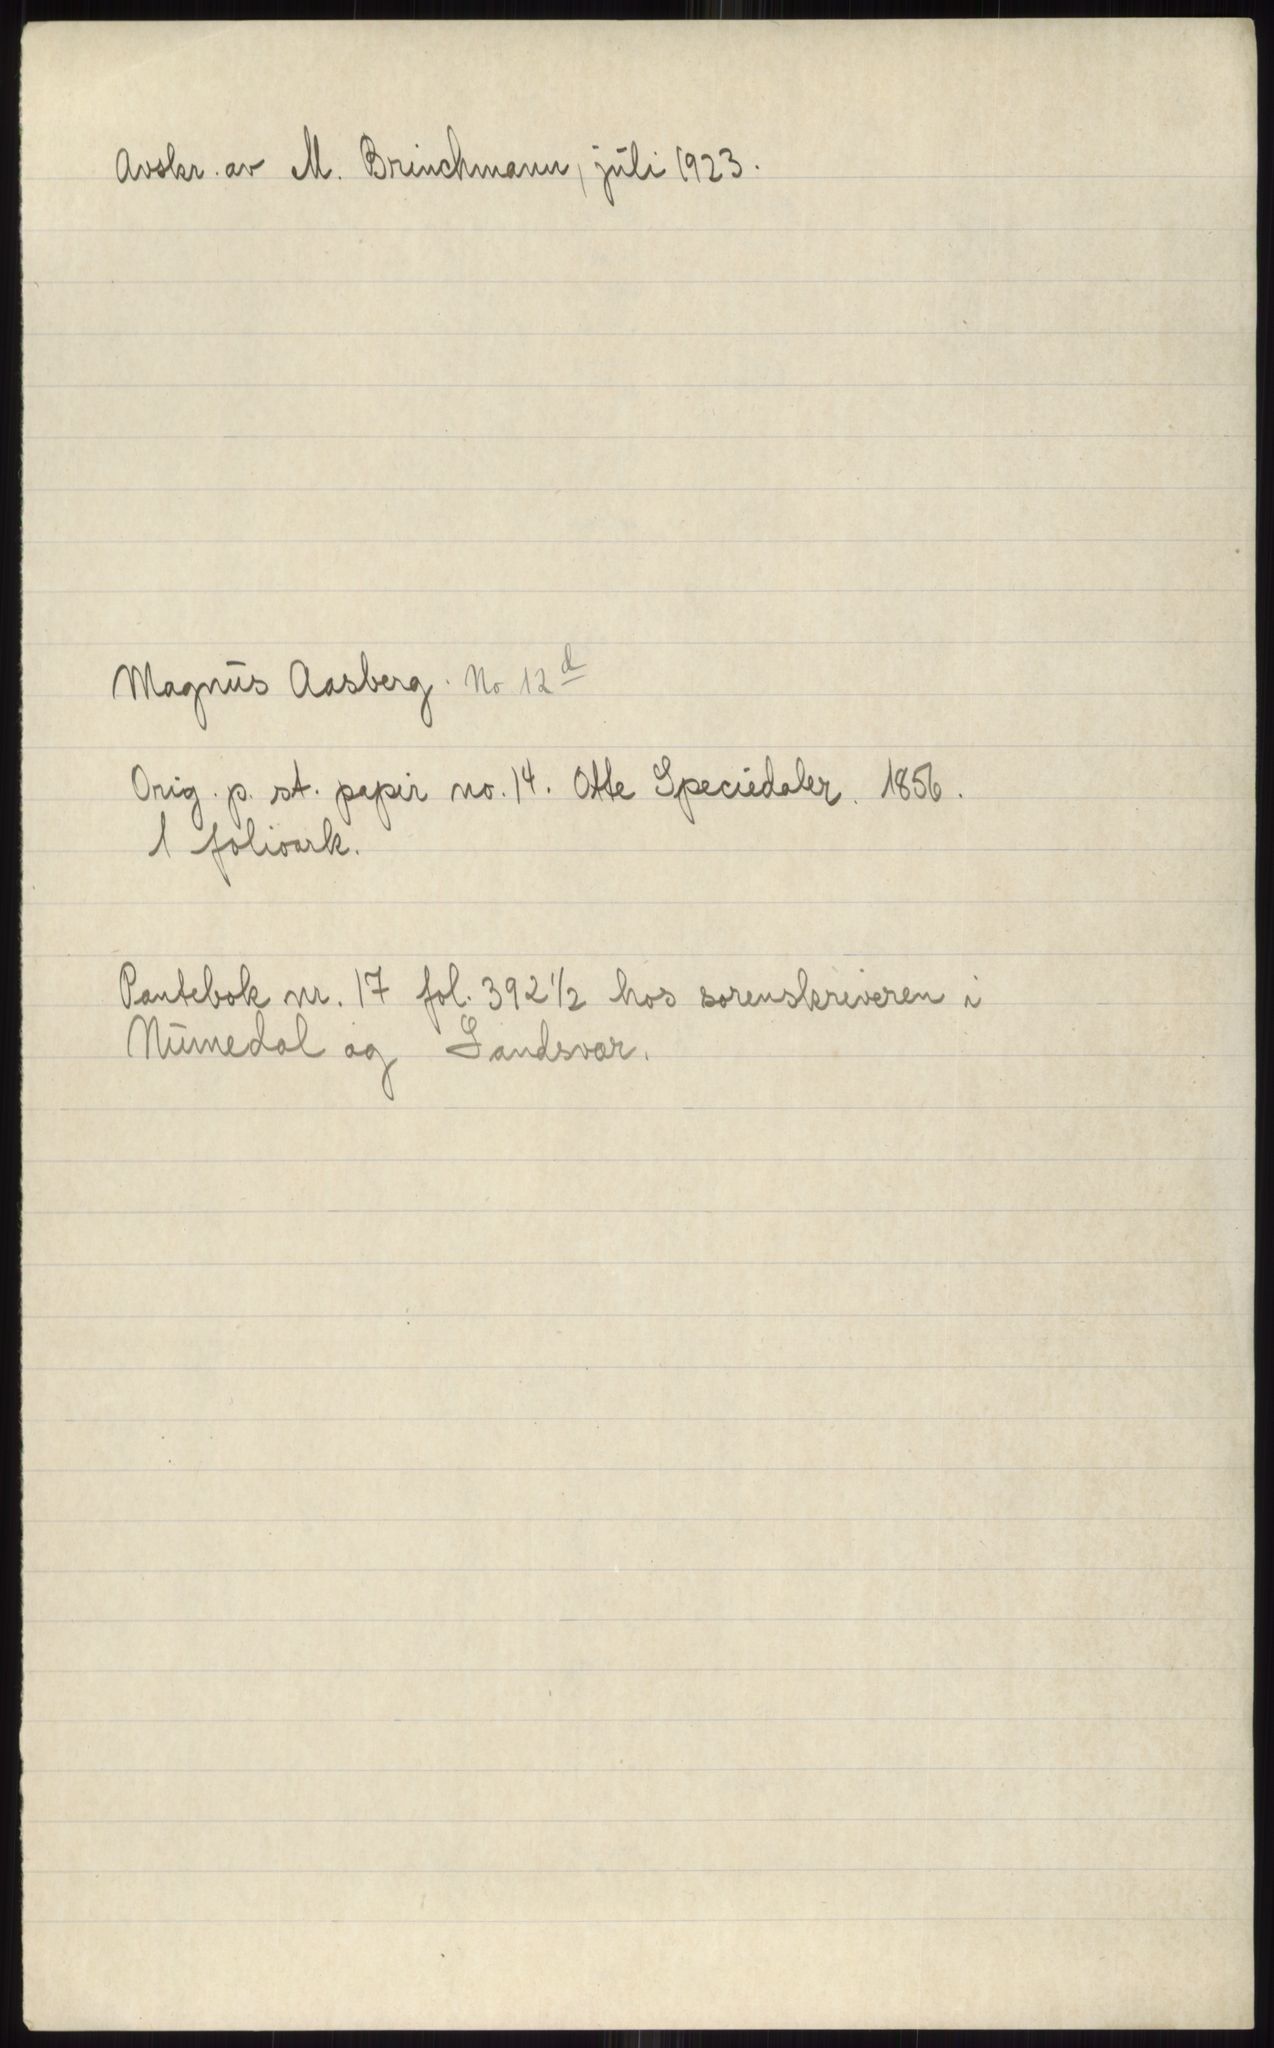 Avskr. av M. Brinchmann, juli 1923.
Magnus Aasberg. No 12 d
Orig. p. st. papir no. 14. Otte Speciedaler. 1856.
1 folioark.
Pantebok nr. 17 fol. 392 1/2 hos sorenskriveren i
Numedal og Sandsvær.